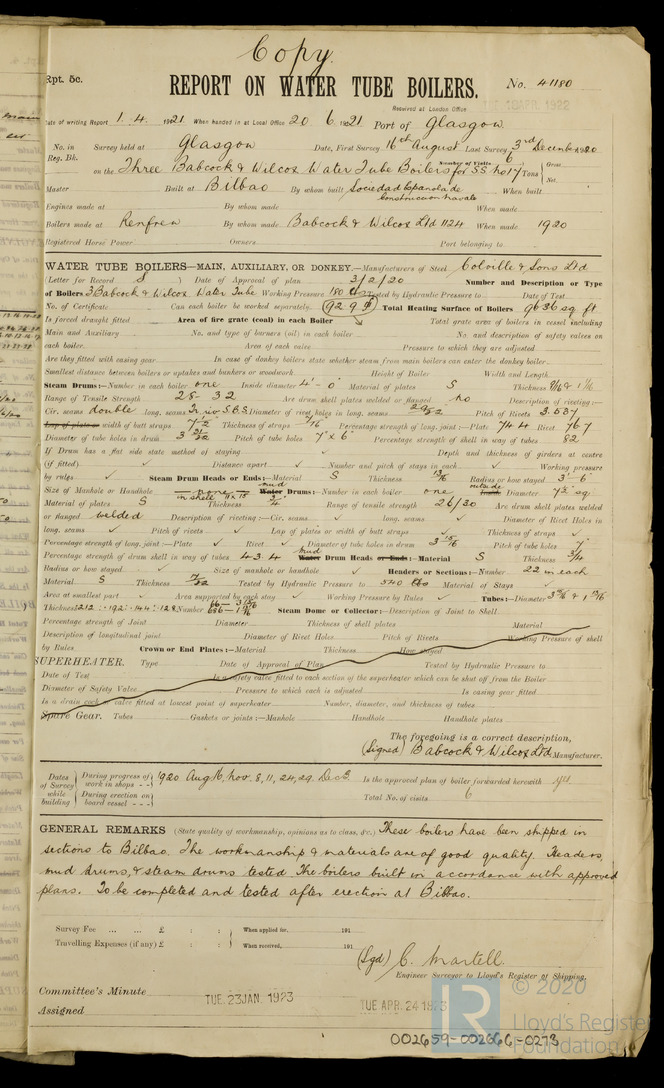 Copy
Rpt. 5c.
REPORT ON WATER TUBE BOILERS.
No. 41180
Received at London Office
TUE 18 APR. 1922
Date of writing Report 1.4. 1921 When handed in at Local Office 20 6. 1921 Port of Glasgow
No. in Reg. Bk. Survey held at Glasgow Date, First Survey 16th August Last Survey 3rd December 1920
Number of Visits 6
on the Three Babcock & Wilcox Water Tube Boilers for S.S. No 17 Tons Gross Net
Master Built at Bilbao By whom built Sociedad Espanola de Construccion Navale When built
Engines made at By whom made When made
Boilers made at Renfrew By whom made Babcock & Wilcox Ltd 1124 When made 1920
Registered Horse Power Owners Port belonging to
WATER TUBE BOILERS—MAIN, AUXILIARY, OR DONKEY.—Manufacturers of Steel Colville & Sons Ltd
(Letter for Record S) Date of Approval of plan 3/2/20 Number and Description or Type
of Boilers 3 Babcock & Wilcox Water Tube Working Pressure 180 lbs Tested by Hydraulic Pressure to Date of Test
No. of Certificate Can each boiler be worked separately 92.9 Total Heating Surface of Boilers 9636 sq ft
Is forced draught fitted Area of fire grate (coal) in each Boiler Total grate area of boilers in vessel including
Main and Auxiliary No. and type of burners (oil) in each boiler No. and description of safety valves on
each boiler Area of each valve Pressure to which they are adjusted
Are they fitted with easing gear In case of donkey boilers state whether steam from main boilers can enter the donkey boiler
Smallest distance between boilers or uptakes and bunkers or woodwork Height of Boiler Width and Length
Steam Drums:—Number in each boiler one Inside diameter 4'-0" Material of plates S Thickness 9/16 & 1 1/16
Range of Tensile Strength 28-32 Are drum shell plates welded or flanged no Description of riveting:—
Cir. seams double long. seams Tr. riv. D.B.S. Diameter of rivet holes in long. seams 29/32 Pitch of Rivets 3.537
Lap of plates or width of butt straps 7 1/2" Thickness of straps 7/16 Percentage strength of long. joint:—Plate 74.4 Rivet 76.7
Diameter of tube holes in drum 3 21/32 Pitch of tube holes 7" x 6" Percentage strength of shell in way of tubes 82
If Drum has a flat side state method of staying ✓ Depth and thickness of girders at centre
(if fitted) ✓ Distance apart ✓ Number and pitch of stays in each ✓ Working pressure
by rules ✓ Steam Drum Heads or Ends:—Material S Thickness 13/16 Radius or how stayed 3'-6"
Size of Manhole or Handhole none in shell 11 x 15 mud Water Drums:—Number in each boiler one outside Inside Diameter 7 1/2" sq.
Material of plates S Thickness 3/4" Range of tensile strength 26/30 Are drum shell plates welded
or flanged welded Description of riveting:—Cir. seams ✓ long. seams ✓ Diameter of Rivet Holes in
long. seams ✓ Pitch of rivets ✓ Lap of plates or width of butt straps ✓ Thickness of straps ✓
Percentage strength of long. joint:—Plate ✓ Rivet ✓ Diameter of tube holes in drum 3 15/16 Pitch of tube holes 7"
Percentage strength of drum shell in way of tubes 43.4 mud Water Drum Heads or Ends:—Material S Thickness 3/4
Radius or how stayed ✓ Size of manhole or handhole ✓ Headers or Sections:—Number 22 in each
Material S Thickness 17/32 Tested by Hydraulic Pressure to 540 lbs Material of Stays
Area at smallest part ✓ Area supported by each stay ✓ Working Pressure by Rules ✓ Tubes:—Diameter 3 15/16 & 1 13/16
Thickness .212 : .192 : .144 : .128 Number 66 — 3 15/16 686 — 1 13/16 Steam Dome or Collector:—Description of Joint to Shell
Percentage strength of Joint Diameter Thickness of shell plates Material
Description of longitudinal joint Diameter of Rivet Holes Pitch of Rivets Working Pressure of shell
by Rules Crown or End Plates:—Material Thickness How stayed
SUPERHEATER. Type Date of Approval of Plan Tested by Hydraulic Pressure to
Date of Test Is a safety valve fitted to each section of the superheater which can be shut off from the Boiler
Diameter of Safety Valve Pressure to which each is adjusted Is easing gear fitted
Is a drain cock or valve fitted at lowest point of superheater Number, diameter, and thickness of tubes
Spare Gear. Tubes Gaskets or joints:—Manhole Handhole Handhole plates
The foregoing is a correct description,
(Signed) Babcock & Wilcox Ltd. Manufacturer.
Dates of Survey while building During progress of work in shops - - 1920 Aug 16, Nov. 8, 11, 24, 29. Dec 3 Is the approved plan of boiler forwarded herewith yes
During erection on board vessel - - - Total No. of visits 6
GENERAL REMARKS (State quality of workmanship, opinions as to class, &c.) These boilers have been shipped in
sections to Bilbao. The workmanship & materials are of good quality. Headers,
mud drums, & steam drums tested. The boilers built in accordance with approved
plans. To be completed and tested after erection at Bilbao.
Survey Fee ... ... £ : : When applied for, 191
Travelling Expenses (if any) £ : : When received, 191
(Sgd) C. Martell
Engineer Surveyor to Lloyd's Register of Shipping.
Committee's Minute TUE. 23 JAN. 1923 TUE APR. 24 1923
Assigned
LR © 2020
Lloyd's Register
Foundation
002659-002666-0273